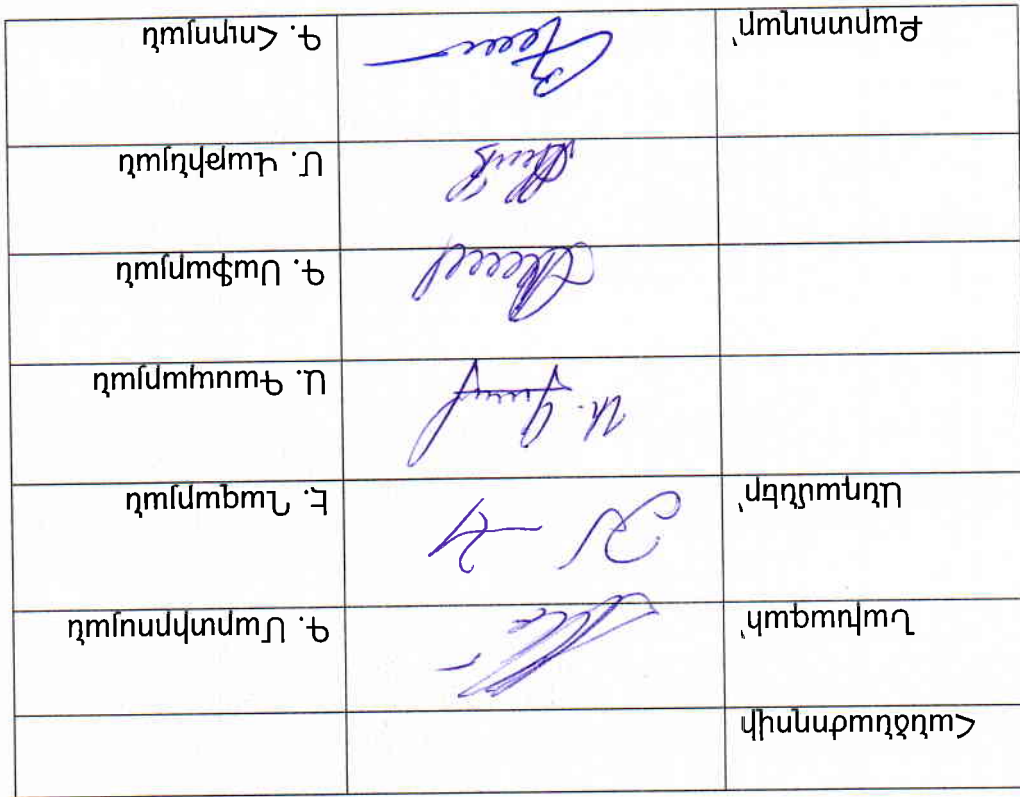 Հանձնաժողովի
Նախագահ՝ Գ. Մարտիրոսյան
Անդամներ՝ Է. Ղազարյան
Ա. Գասպարյան
Գ. Սաֆարյան
Մ. Վաթինյան
Քարտուղար՝ Գ. Հուրյան